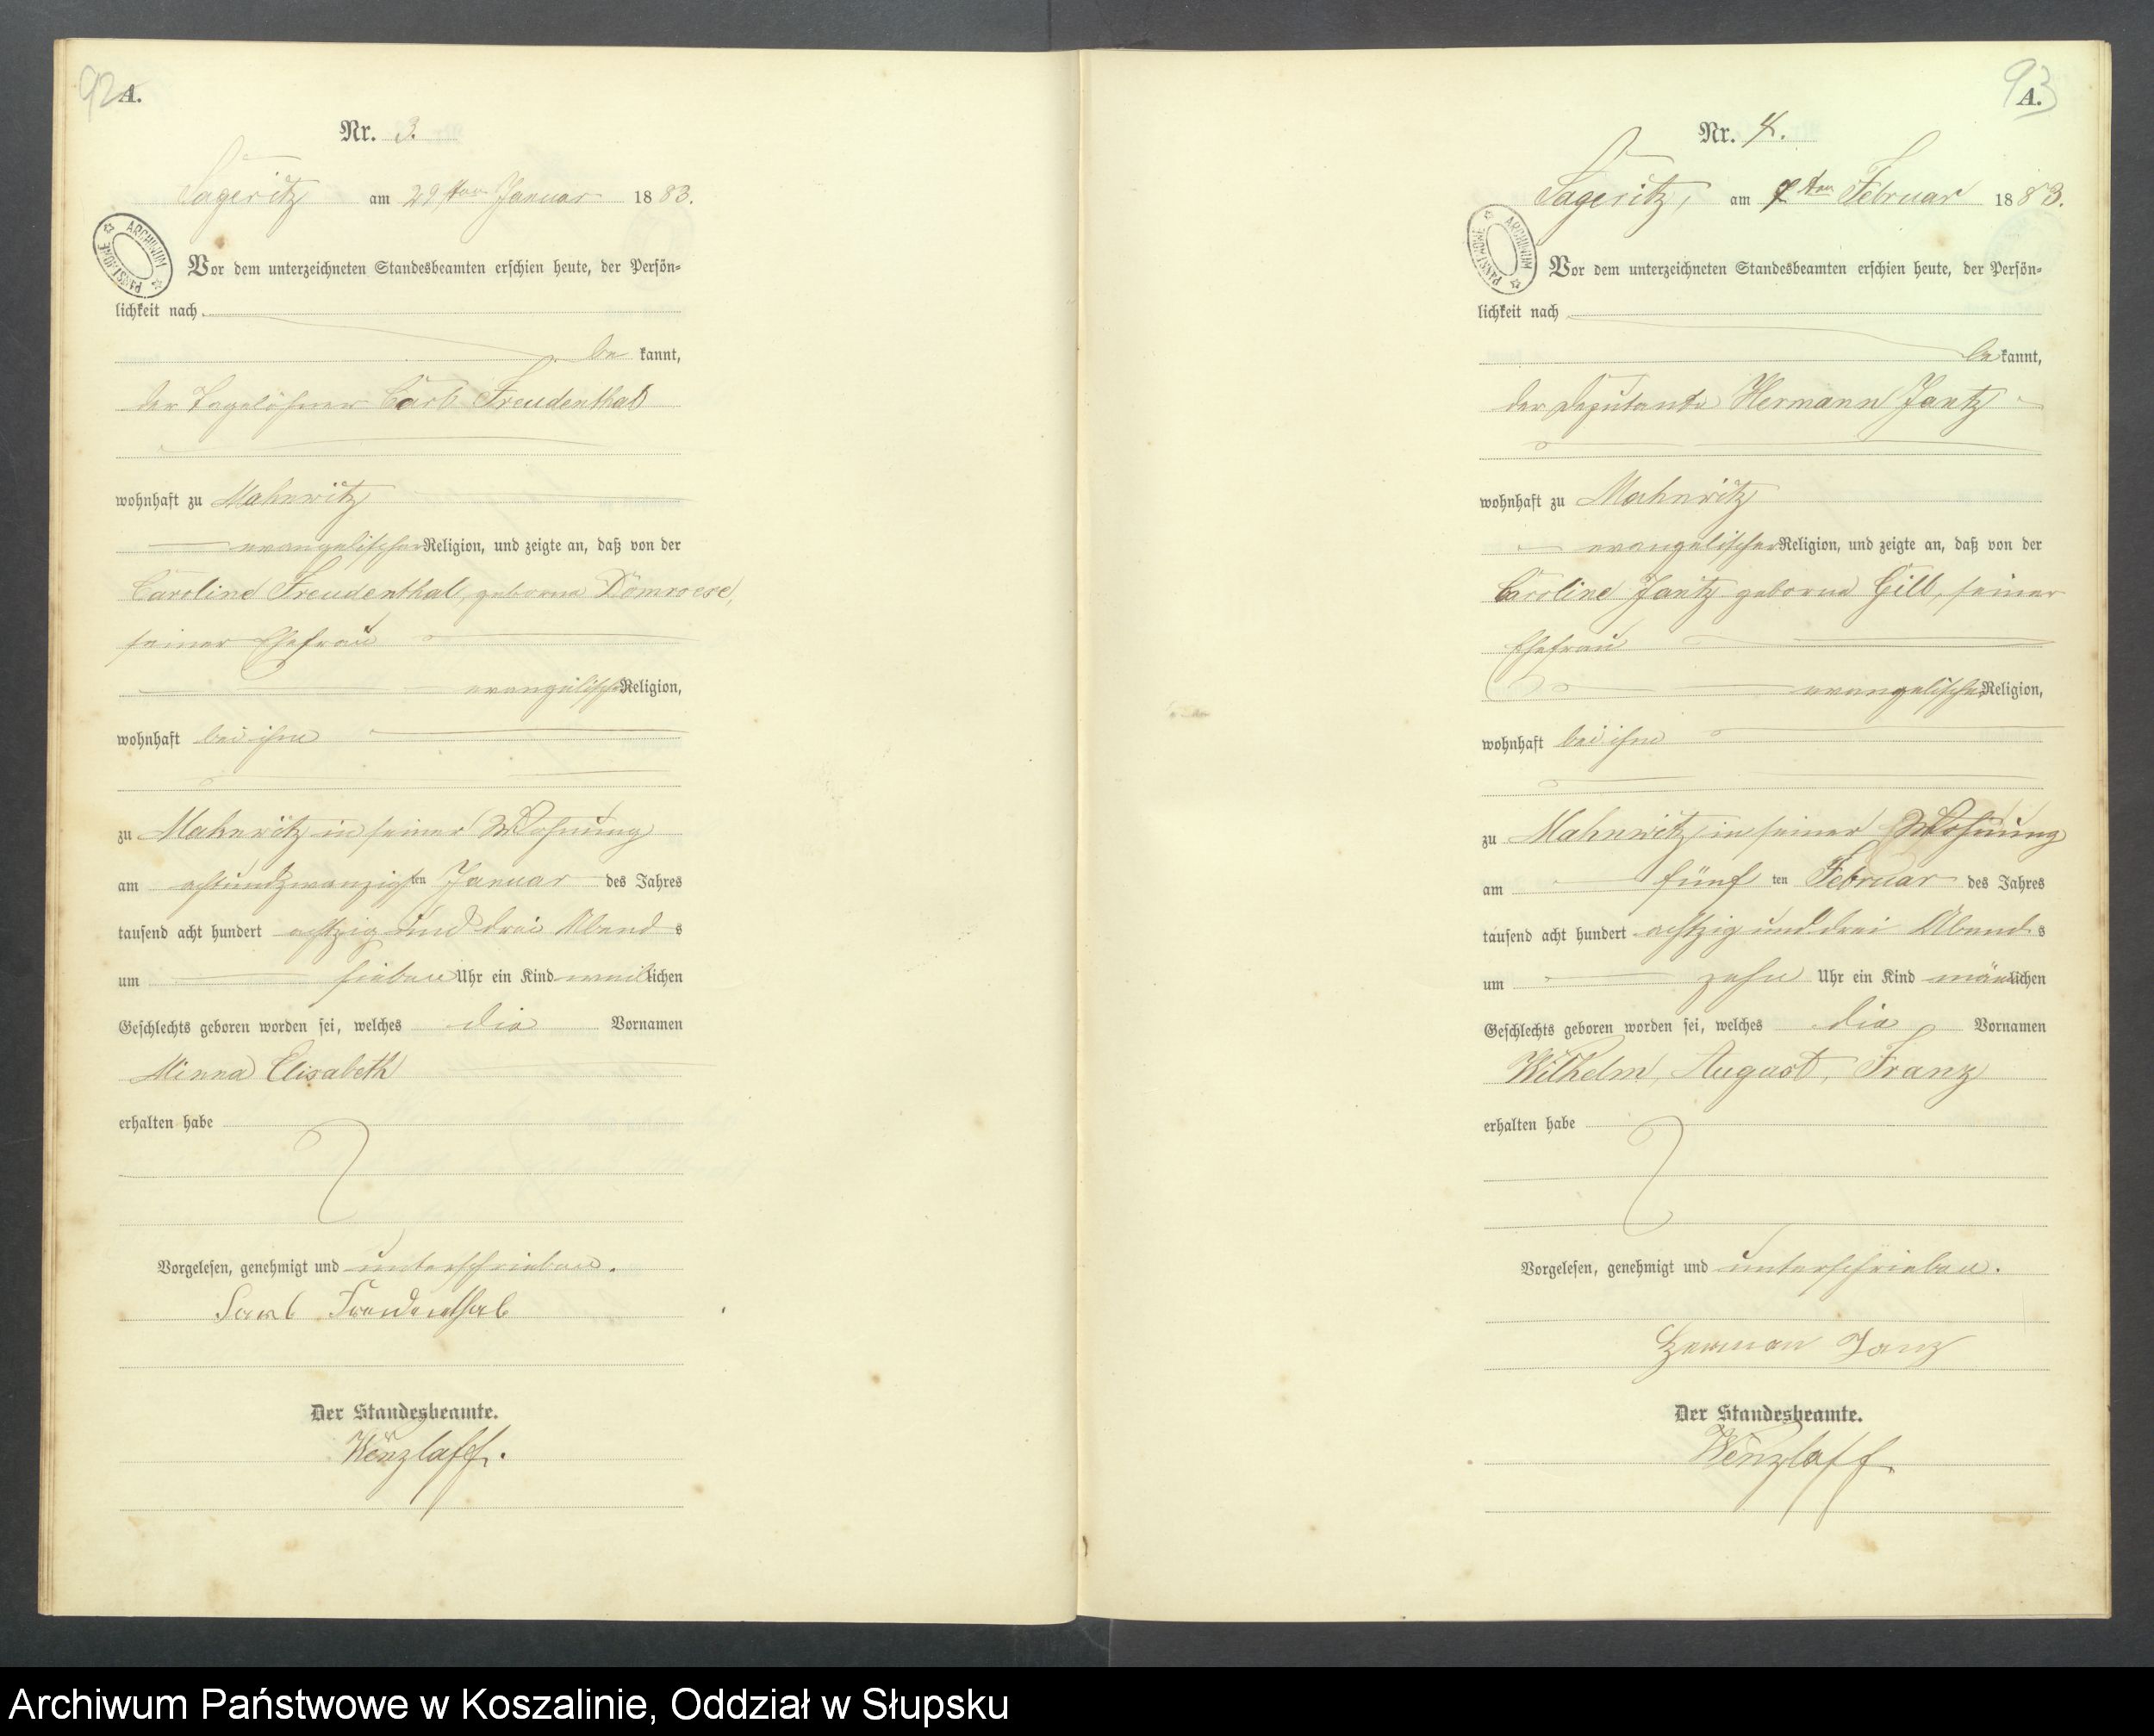 92
A.
Nr. 3.
Sageritz am 29ten Januar 1883.
ARCHIWUM PAŃSTWOWE
Vor dem unterzeichneten Standesbeamten erschien heute, der Persön=
lichkeit nach
be kannt,
der Tagelöhner Carl Freudenthal
wohnhaft zu Mahnwitz
evangelischer Religion, und zeigte an, daß von der
Caroline Freudenthal, geborne Domroese,
seiner Ehefrau
evangelischer Religion,
wohnhaft bei ihm
zu Mahnwitz in seiner Wohnung
am achtundzwanzigsten Januar des Jahres
tausend acht hundert achtzig und drei Abends
um sieben Uhr ein Kind weiblichen
Geschlechts geboren worden sei, welches die Vornamen
Minna Elisabeth
erhalten habe
Vorgelesen, genehmigt und unterschrieben.
Carl Freudenthal
Der Standesbeamte.
Wenzlaff.
93
A.
Nr. 4.
Sageritz, am 7ten Februar 1883.
ARCHIWUM PAŃSTWOWE
Vor dem unterzeichneten Standesbeamten erschien heute, der Persön=
lichkeit nach
be kannt,
der Deputant Hermann Jantz
wohnhaft zu Mahnwitz
evangelischer Religion, und zeigte an, daß von der
Caroline Jantz geborne Gill, seiner
Ehefrau
evangelischer Religion,
wohnhaft bei ihm
zu Mahnwitz in seiner Wohnung
am fünf ten Februar des Jahres
tausend acht hundert achtzig und drei Abends
um zehn Uhr ein Kind männlichen
Geschlechts geboren worden sei, welches die Vornamen
Wilhelm, August, Franz
erhalten habe
Vorgelesen, genehmigt und unterschrieben.
Herman Janz
Der Standesbeamte.
Wenzlaff
Archiwum Państwowe w Koszalinie, Oddział w Słupsku